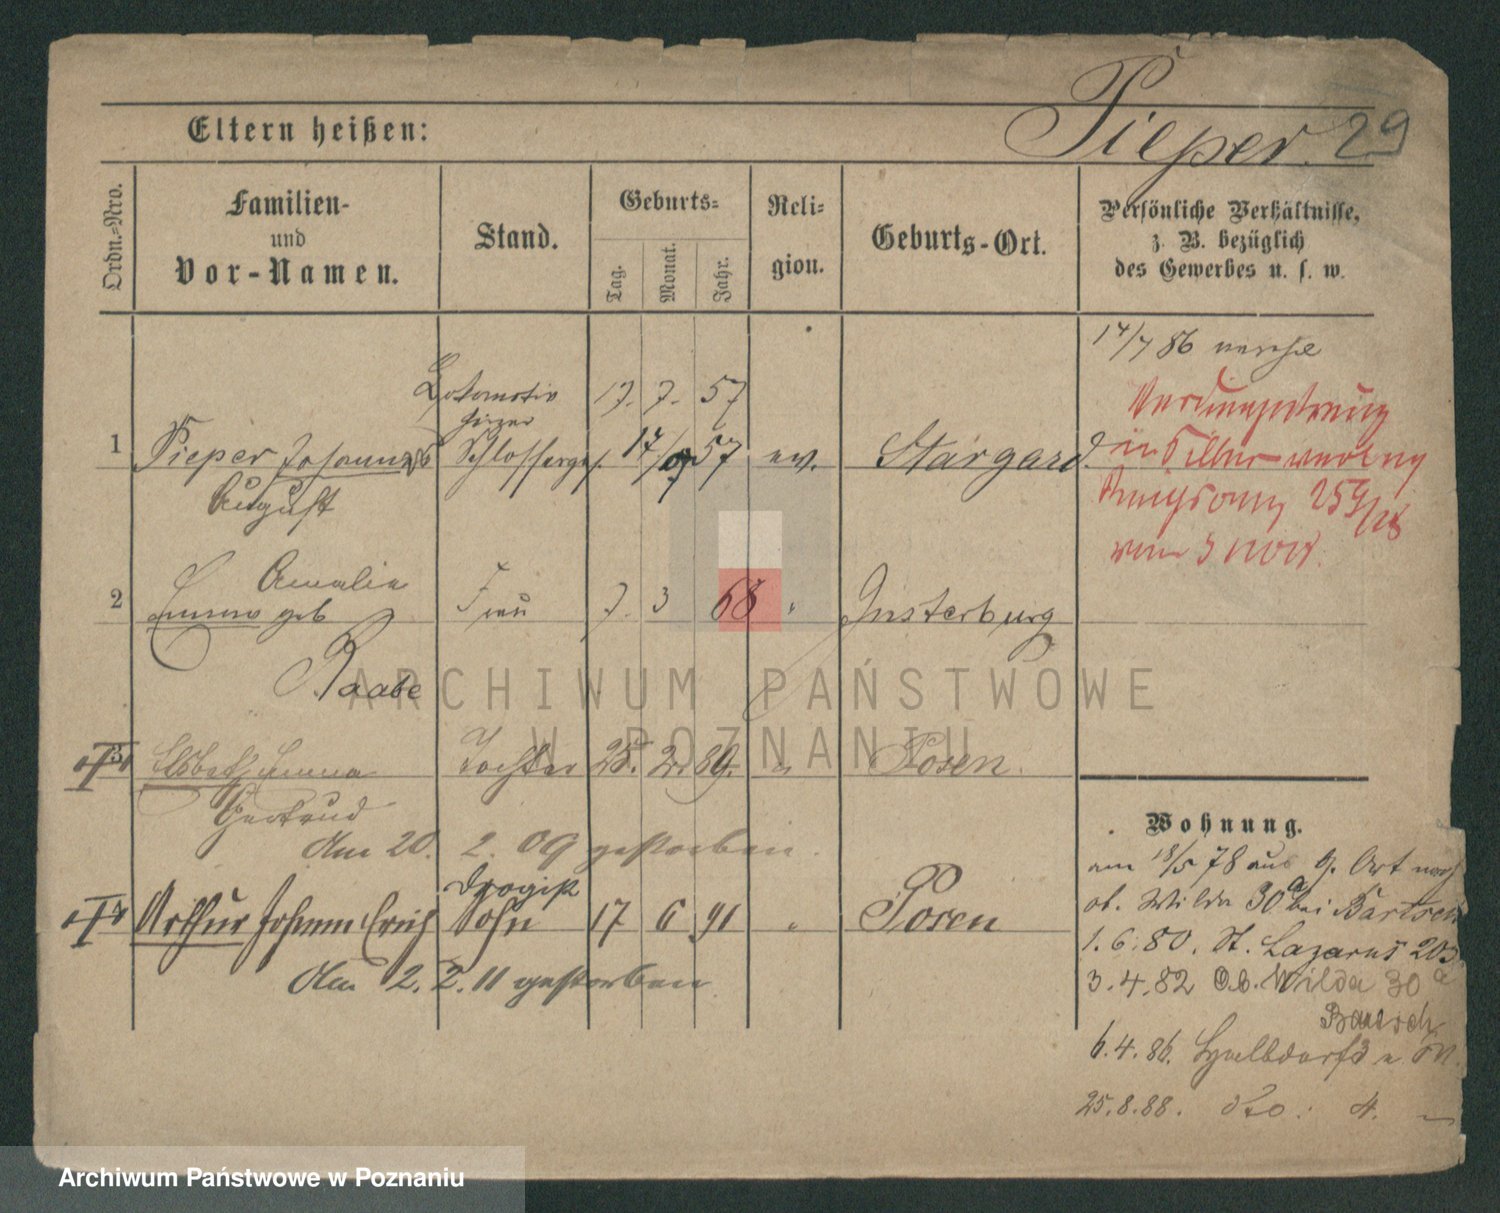 Pieper. 29
Eltern heißen:
Ordn.=Nro.
Familien-
und
Vor-Namen.
Stand.
Geburts=
Tag.
Monat.
Jahr.
Reli=
gion.
Geburts-Ort.
Persönliche Verhältnisse,
z. B. bezüglich
des Gewerbes u. s. w.
17/7 86
Lokomotiv 17. 7. 57
heizer
1 Pieper Johannes Schlosserges. 17/07 57 ev. Stargard.
August
25 9/28
vom 3 nov.
Amalie
2 Emma geb Frau 7. 3 68 " Insterburg
Raabe
ARCHIWUM PAŃSTWOWE
W POZNANIU
3 Elsbeth Emma Tochter 25. 2. 89. " Posen.
Gertrud
Am 20. 2. 09 gestorben.
Drogist
4 Arthur Johann Erich Sohn 17 6 91 " Posen
Am 2. 2. 11 gestorben
Wohnung.
am 18/5 78 aus g. Ort nach
ob. Wilda 30a bei Bartsch
1. 6. 80. St. Lazarus 203
3. 4. 82 Ob. Wilda 30 a
Bartsch
6. 4. 86. Halbdorfs
25. 8. 88. dto: 4.
Archiwum Państwowe w Poznaniu